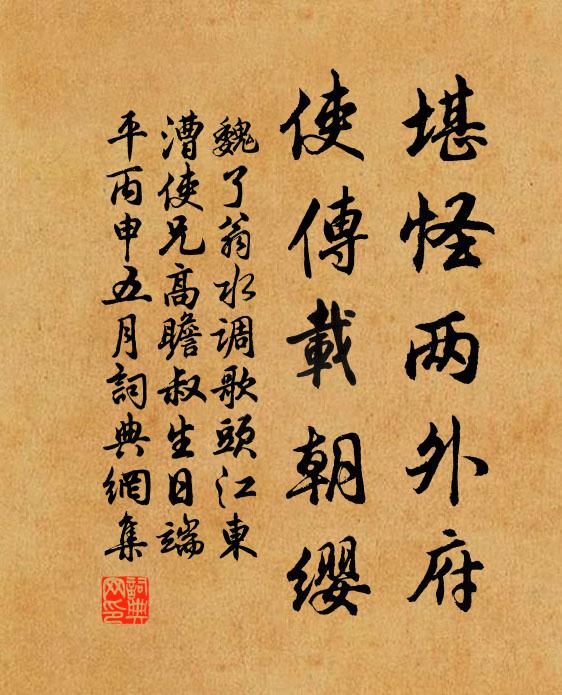 堪怪两外府
使傳載朝纓
魏了翁水调歌頭江東
漕使兄高瞻叔生日端
平丙申五月詞典網集
詞典
网印